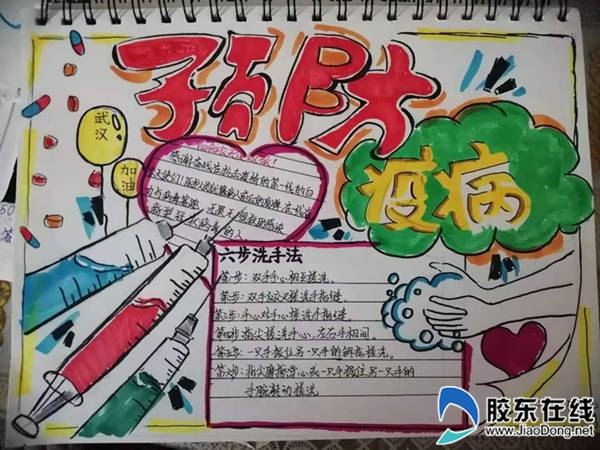 预防
疫病
武汉
加油
感谢奋战在抗击疫情的第一线的白
六步洗手法
第一步：双手手心相互搓洗。
第二步：双手交叉搓洗手指缝。
第三步：手心对手心搓洗手指缝。
第四步：指尖搓洗手心，左右手相同。
第五步：一只手握住另一只手的拇指搓洗。
第六步：指尖摩擦掌心或一只手握住另一只手的
手腕转动搓洗
50
答
胶东在线
www.JiaoDong.net